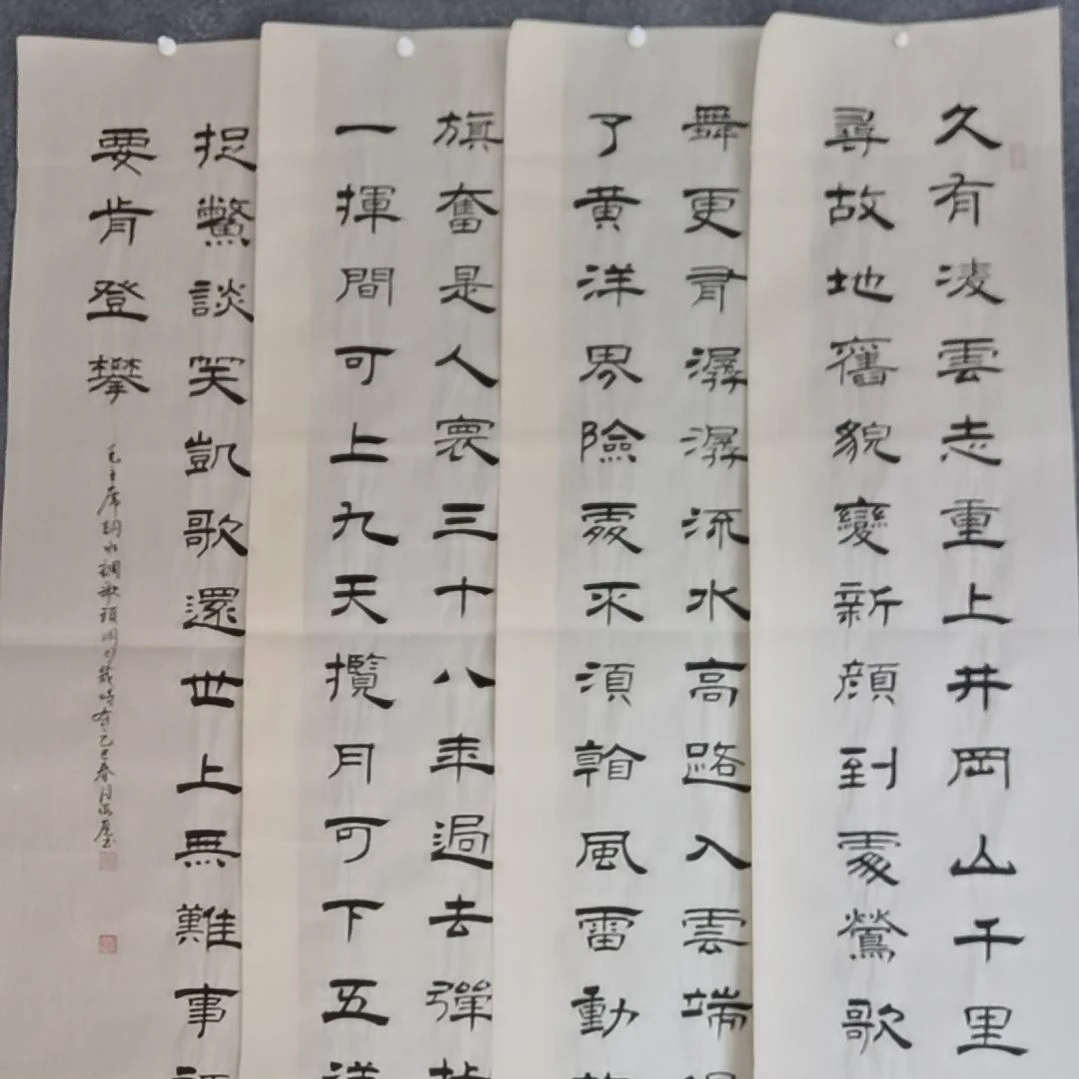 久有凌雲志重上井岡山千里
尋故地舊貌變新顏到處鶯歌
舞更有潺潺流水高路入雲端
了黃洋界險處不須看風雷動
旗奮是人寰三十八年過去彈指
一揮間可上九天攬月可下五洋
捉鱉談笑凱歌還世上無難事
要肯登攀
毛主席詞水調歌頭 歲時在乙巳春月